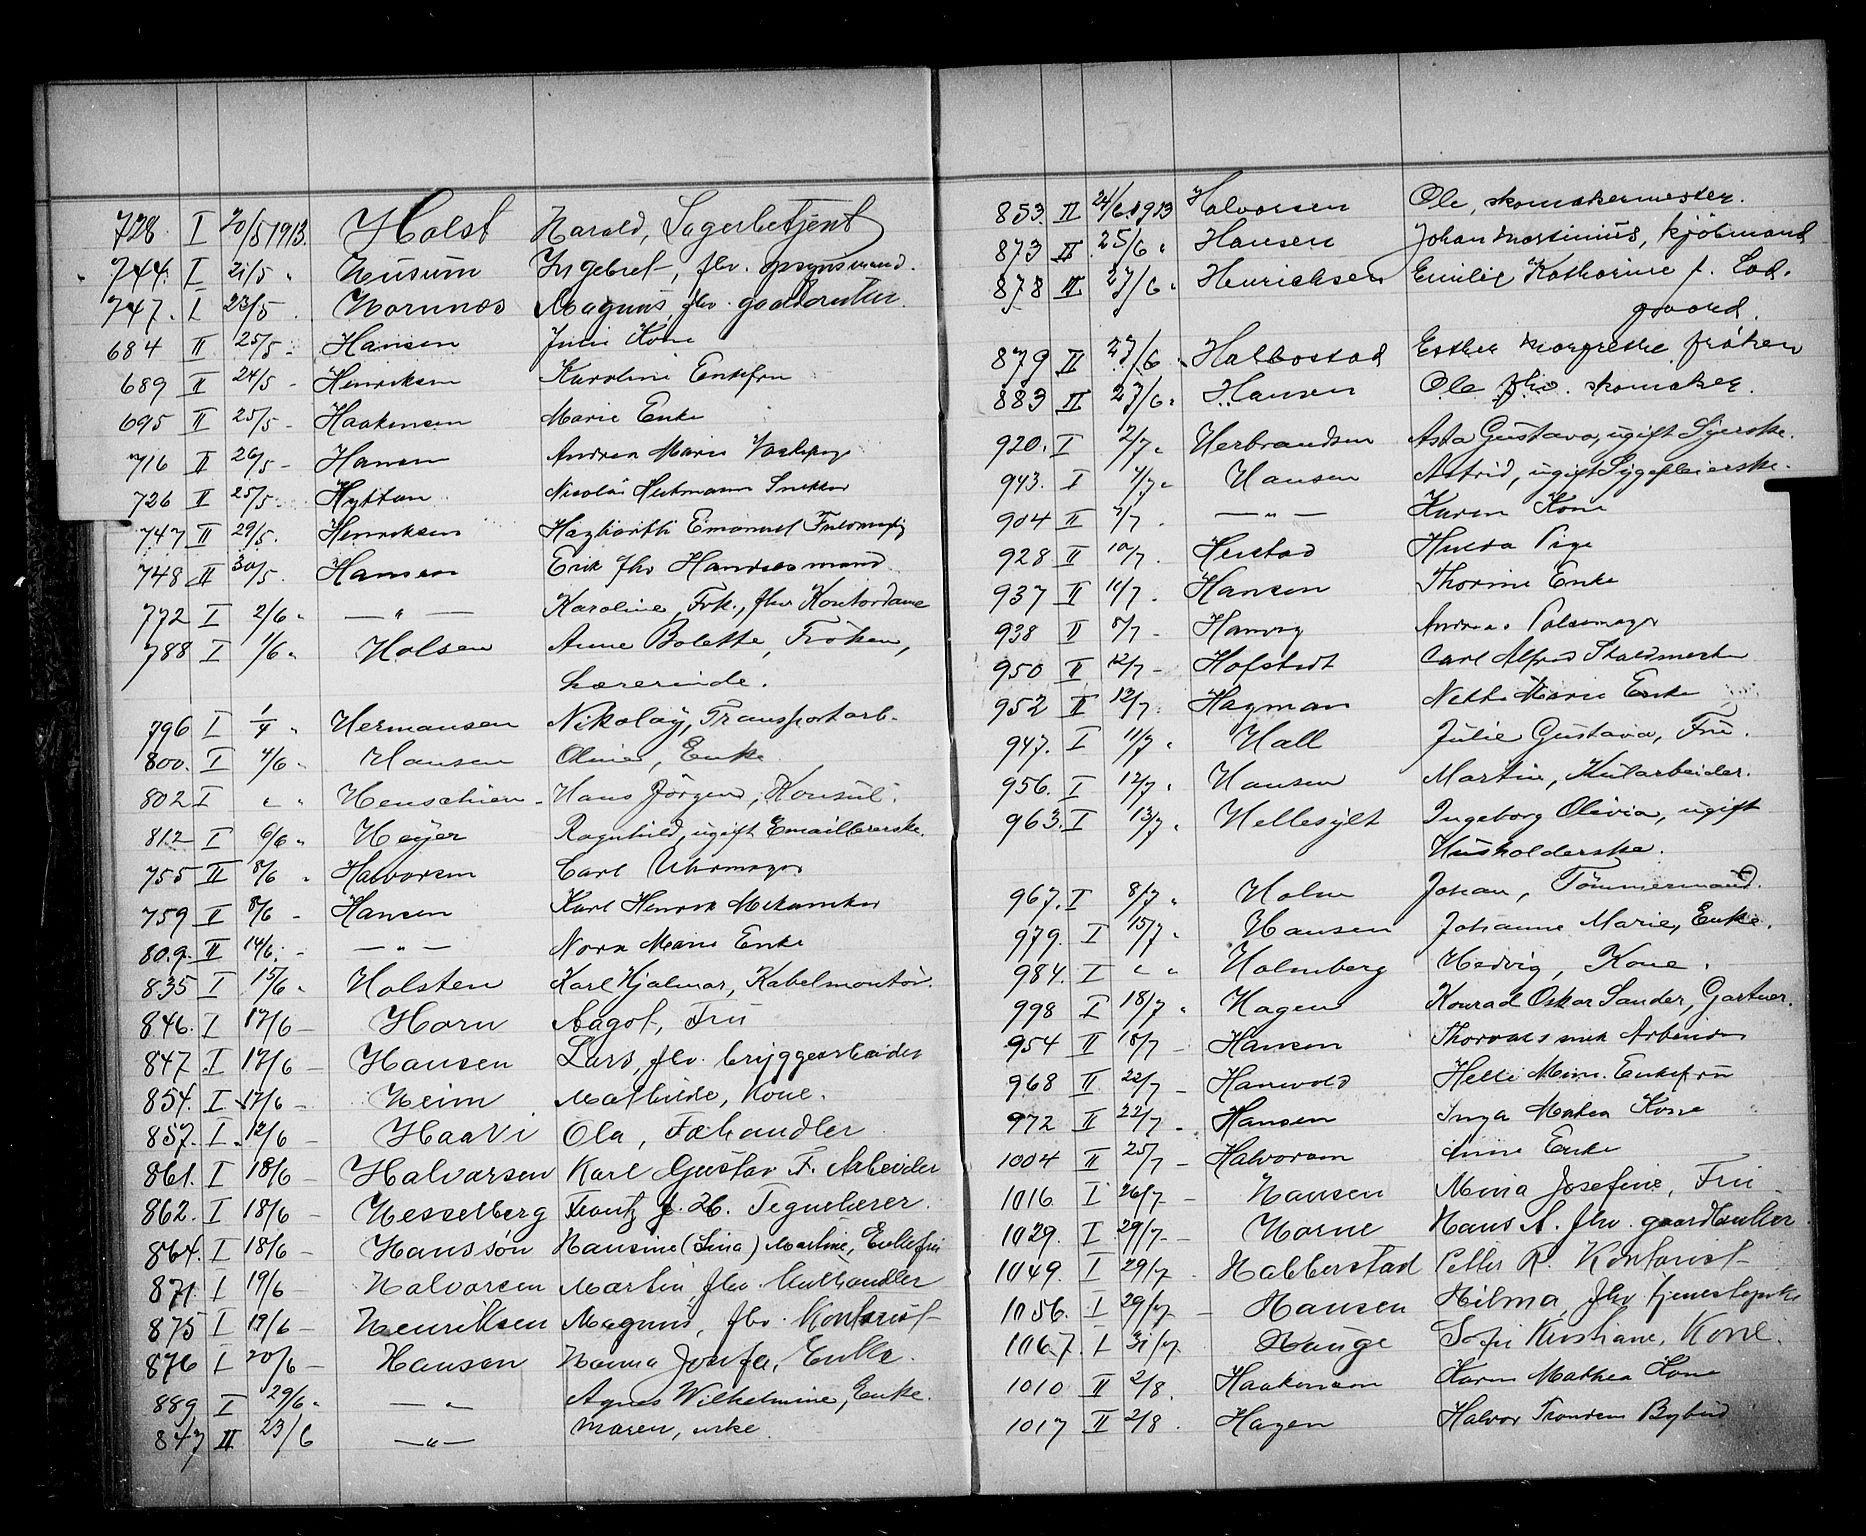 728 I 20/5 1913. Holst Harald, Lagerbetjent
744. I 21/5 " Husum Ingebret, fhv. opsynsmand.
747. I 23/5 Hornnes Magnus, fhv. gaardbruker.
684 II 25/5 - Hansen Juli Kone
689 II 24/5 - Henriksen Karoline Enkefru
695 II 25/5 - Haakensen Marie Enke
716 II 26/5 - Hansen Andrea Marie
726 II 25/5 - Hytten Nicolai Snekker
747 II 29/5. Henriksen Hagbarth Emanuel
748 II 30/5. Hansen Erik fhv Handelsmand
772 I 2/6 " — " — Karoline, Frk., fhv Kontordame
788 I 1/6 " Holsen Anne Bolette, Frøken,
Lærerinde.
796 I 1/4 " Hermansen Nikolay, Transportarb.
800. I 4/6 " Hansen Oline, Enke
802 I " " Henschien Hans Jörgen, Konsul.
812 I 6/6 " Høyer Ragnhild, ugift
755 II 8/6 " Halvorsen Carl Uhrmager
759 II 8/6 - Hansen Karl Henrik Mekaniker
809. II 14/6. - — " — Nora Marie Enke
835 I 15/6 " Holsten Karl Hjalmar, Kabelmontør.
846. I 17/6 — Horn Aagot, Fru
847 I 17/6 — Hansen Lars, fhv. bryggearbeider
854. I 17/6 — Heim Mathilde, Kone.
857. I 12/6 — Haavi Ola, Fæhandler
861. I 18/6 — Halvorsen Karl Gustav F. Arbeider
862. I 18/6 — Hesselberg Frantz J. H. Tegnelærer.
864. I 18/6 — Hanssøn Hansine (Sina) Martine, Enkefru
871. I 19/6 — Halvorsen Martin, fhv. kulhandler
875 I 19/6 — Henriksen Magnus, fhv. Kontorist
876 I 20/6 — Hansen Hanna Josefa, Enke.
889 I 29/6 " — " Agnes Wilhelmine, Enke.
847 II 23/6 — " — Maren, enke
853. II 24/6 1913 Halvorsen Ole, skomakermester.
873 II 25/6 " Hansen Johan Martinius, kjøbmand
878 II 27/6 " Henrichsen Emilie Katharine f. Lod-
gaard.
879 II 27/6 " Halbostad Esther Margrethe frøken
883 II 27/6 " Hansen Ole fhv. skomaker.
920. I 2/7 " Herbrandsen Asta Gustava, ugift Syerske.
943. I 4/7 " Hansen Astrid, ugift Sygepleierske.
904 II 7/7 . — " — Karen Kone
928 II 10/7 . Heistad Hulda Pige
937 II 11/7 . Hansen Thorine Enke
938 II 8/7 - Andrea Pølsemager
950 II 12/7 - Hofstedt Carl Alfred Staldmester
952 II 12/7 . Hagman Marie Enke
947. I 11/7 " Hall Julie Gustava, Fru.
956. I 12/7 " Hansen Martin, Kularbeider.
963. I 13/7 " Hellesylt Ingeborg Olivia, ugift
Husholderske.
967. I 8/7 " Holm Johan, Tømmermand.
979. I 15/7 " Hansen Johanne Marie, Enke.
984. I " " Holmberg Hedvig, Kone.
998 I 18/7 " Hagen Konrad Oskar Sander, Gartner.
954 II 18/7 — Hansen Arbeider
968 II 22/7 — Hanevold Enkefru
972 II 22/7 - Hansen Inga Mathea Kone
1004 II 25/7 - Halvorsen Anne Enke
1016 I 26/7 — Hansen Mina Josefine, Fru
1029. I 29/7 — Horne Hans A. fhv. gaardbruker.
1049. I 29/7 . Habberstad Petter R. Kontorist
1056. I 29/7 — Hansen Hilma, fhv. tjenestepike
1067. I 31/7 Hauge Sofie Kristiane, Kone.
1010 II 2/8. Haakensen Karen Mathea Kone
1017 II 2/8 . Hagen Halvor Bybud